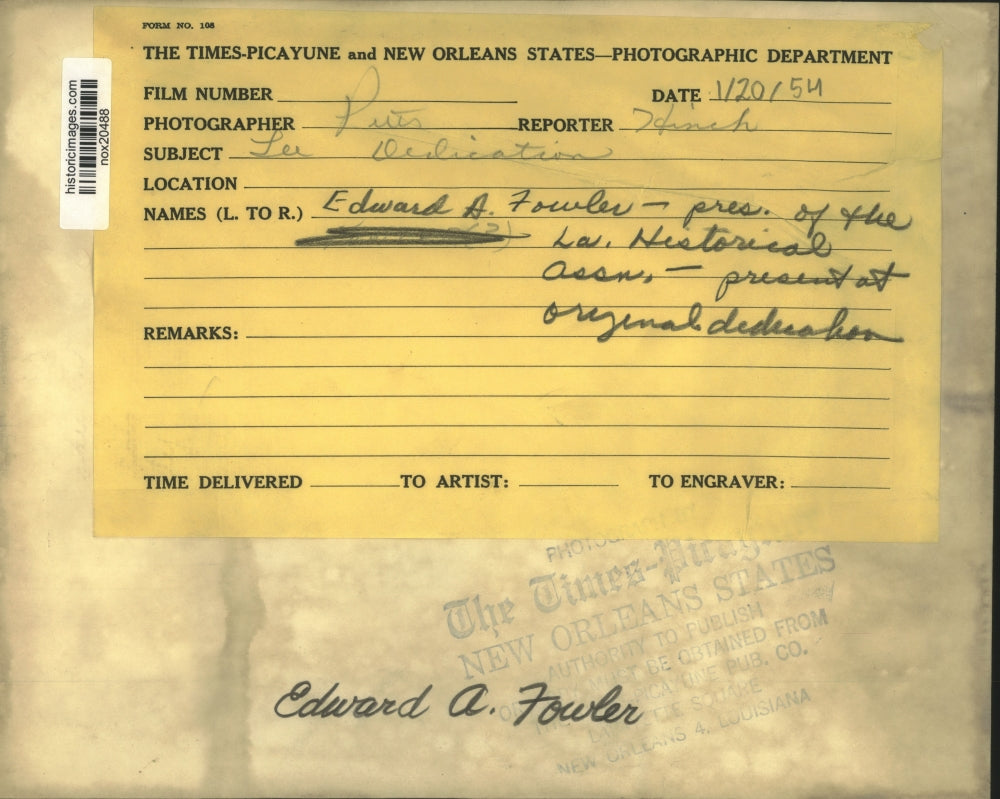 FORM NO. 108
THE TIMES-PICAYUNE and NEW ORLEANS STATES—PHOTOGRAPHIC DEPARTMENT
FILM NUMBER
DATE 1/20/54
PHOTOGRAPHER
REPORTER
SUBJECT Lee Dedication
LOCATION
NAMES (L. TO R.) Edward A. Fowler — pres. of the
La. Historical
Assn. — present at
original dedication
REMARKS:
TIME DELIVERED TO ARTIST: TO ENGRAVER:
historicimages.com
nox20488
The Times-Picayune
NEW ORLEANS STATES
AUTHORITY TO PUBLISH
MUST BE OBTAINED FROM
PICAYUNE PUB. CO.
SQUARE
NEW ORLEANS 4, LOUISIANA
Edward A. Fowler